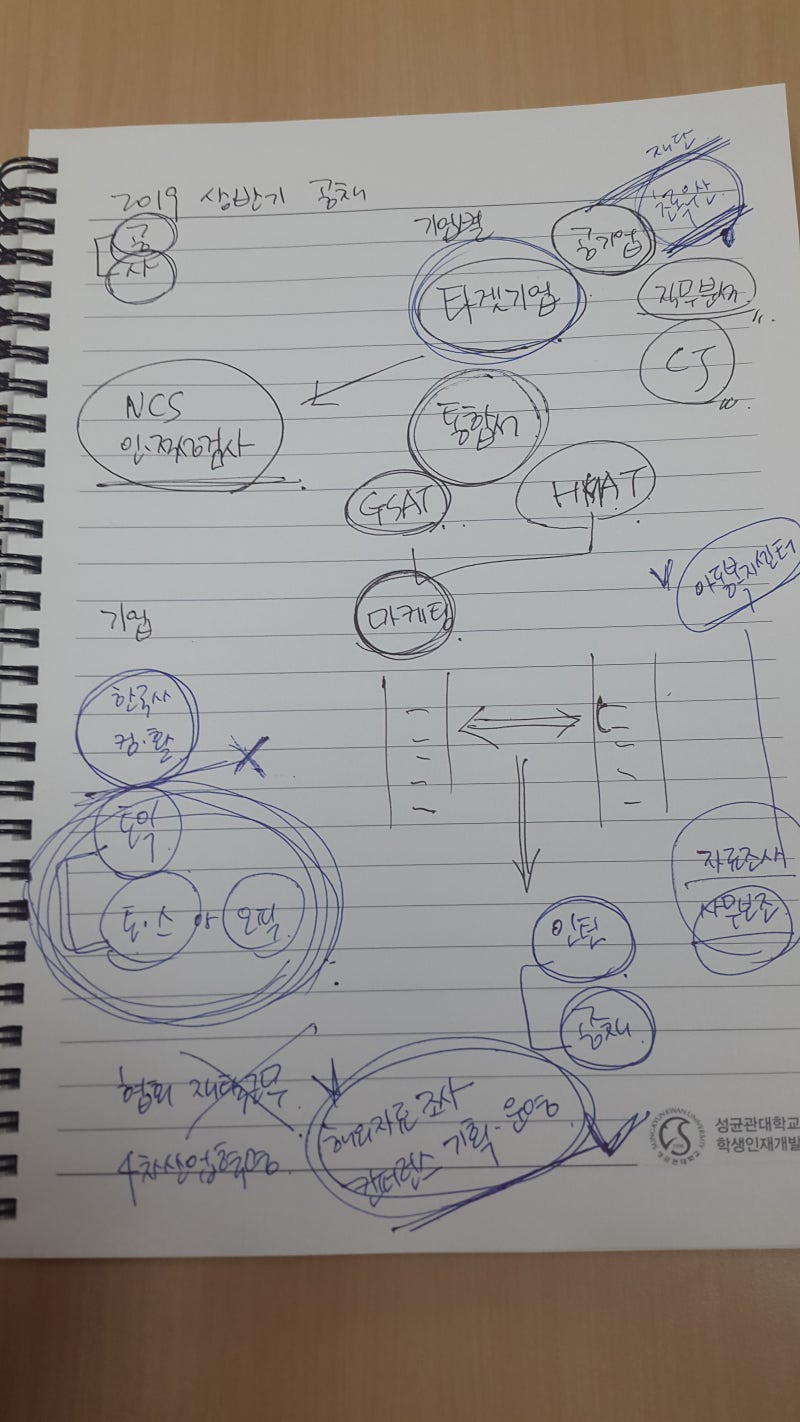 2019 상반기 공채
공
사
기업별
공기업
재단
타겟기업
직무분석
CJ
NCS
인·적성검사
통합
GSAT
HMAT
마케팅
아동복지센터
기업
한국사
컴·활
토익
토·스 or 오픽
자료조사
사무보조
인턴
공채
협회 재택근무
4차산업혁명
해외자료 조사
컨퍼런스 기획·운영
성균관대학교
학생인재개발
SUNGKYUNKWAN UNIVERSITY